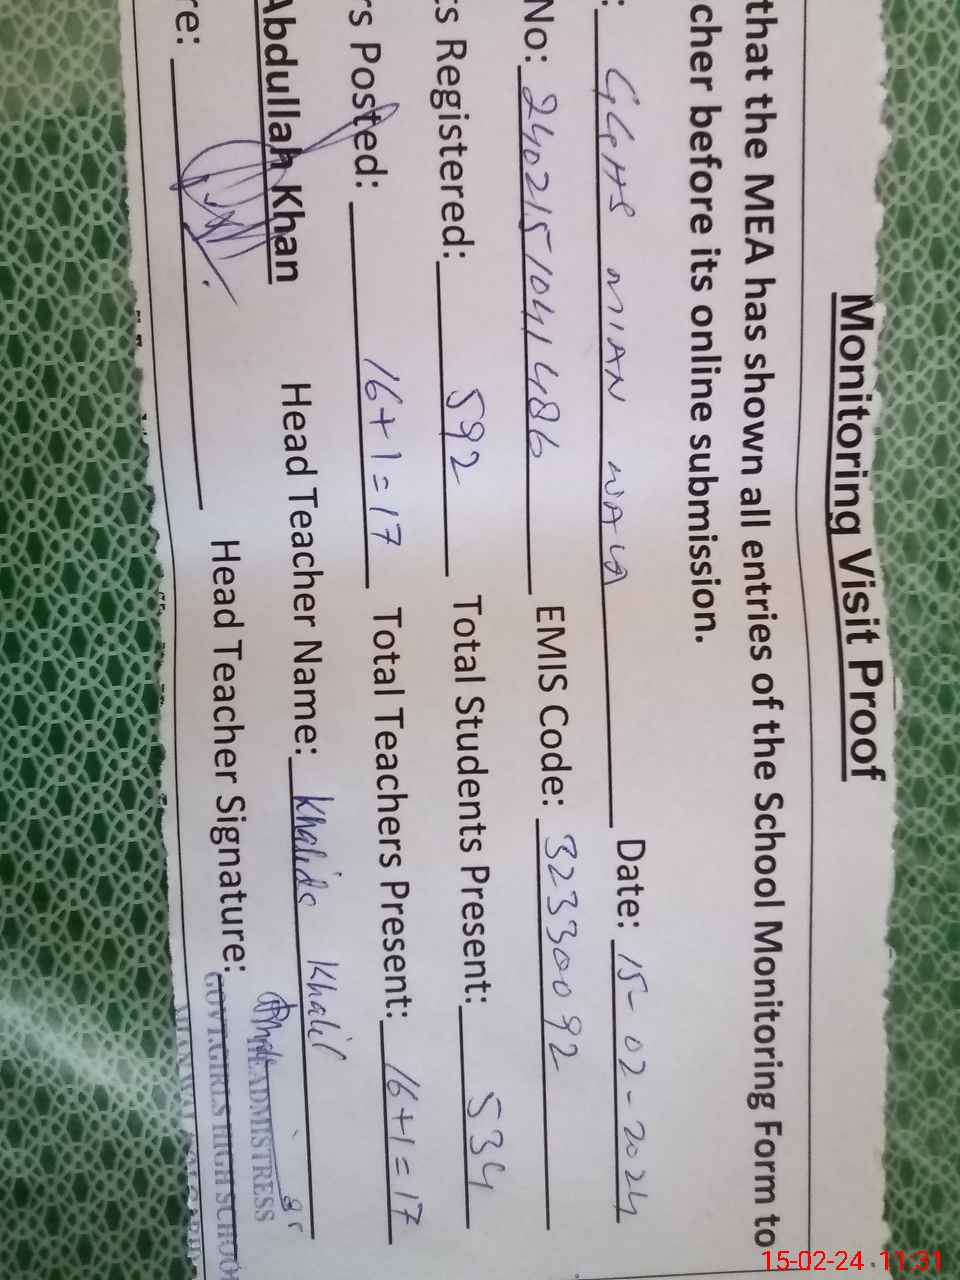 Monitoring Visit Proof
that the MEA has shown all entries of the School Monitoring Form to
cher before its online submission.
: GGHS MIAN WALI Date: 15-02-2024
No: 2402151041486 EMIS Code: 32330092
s Registered: 592 Total Students Present: 534
rs Posted: 16+1=17 Total Teachers Present: 16+1=17
Abdullah Khan Head Teacher Name: Khalida Khalil
re: Head Teacher Signature:
HEADMISTRESS
GOVT.GIRLS HIGH SCHOOL
15-02-24 11:31